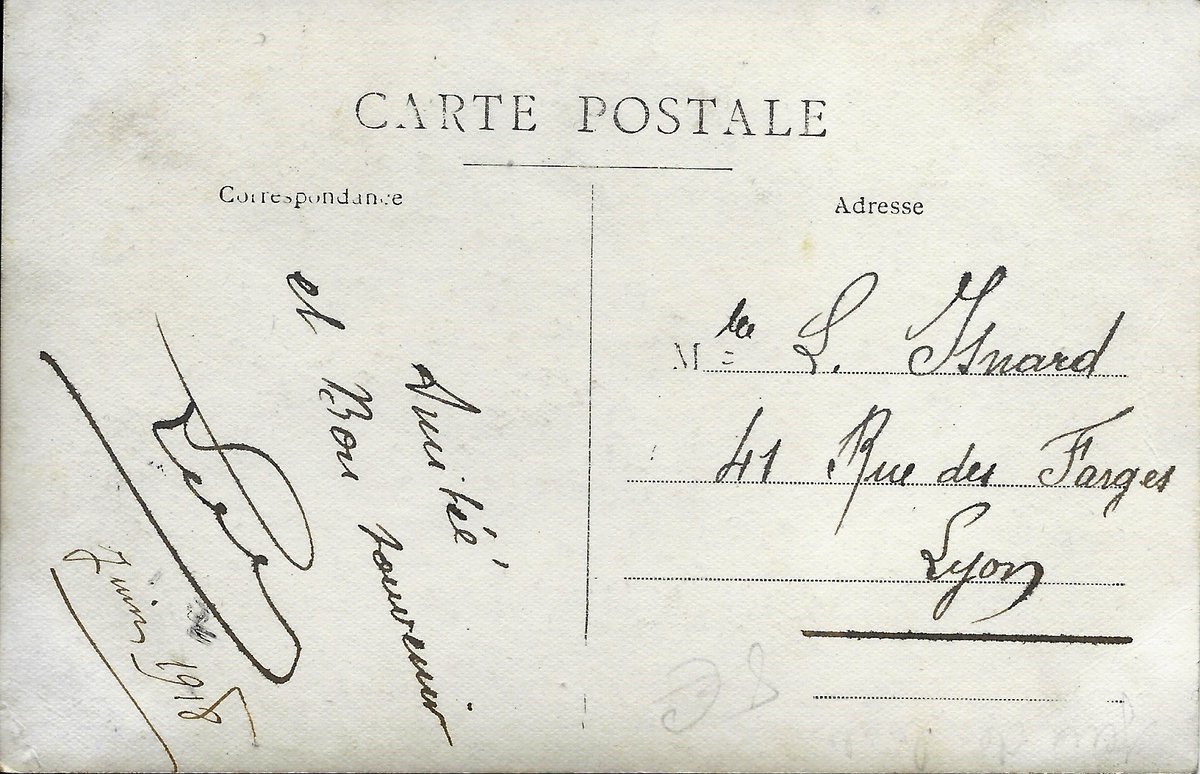 CARTE POSTALE
Correspondance
Adresse
Amitié
et Bon souvenir
Juin 1918
Mlle L. Isnard
41 Rue des Farges
Lyon